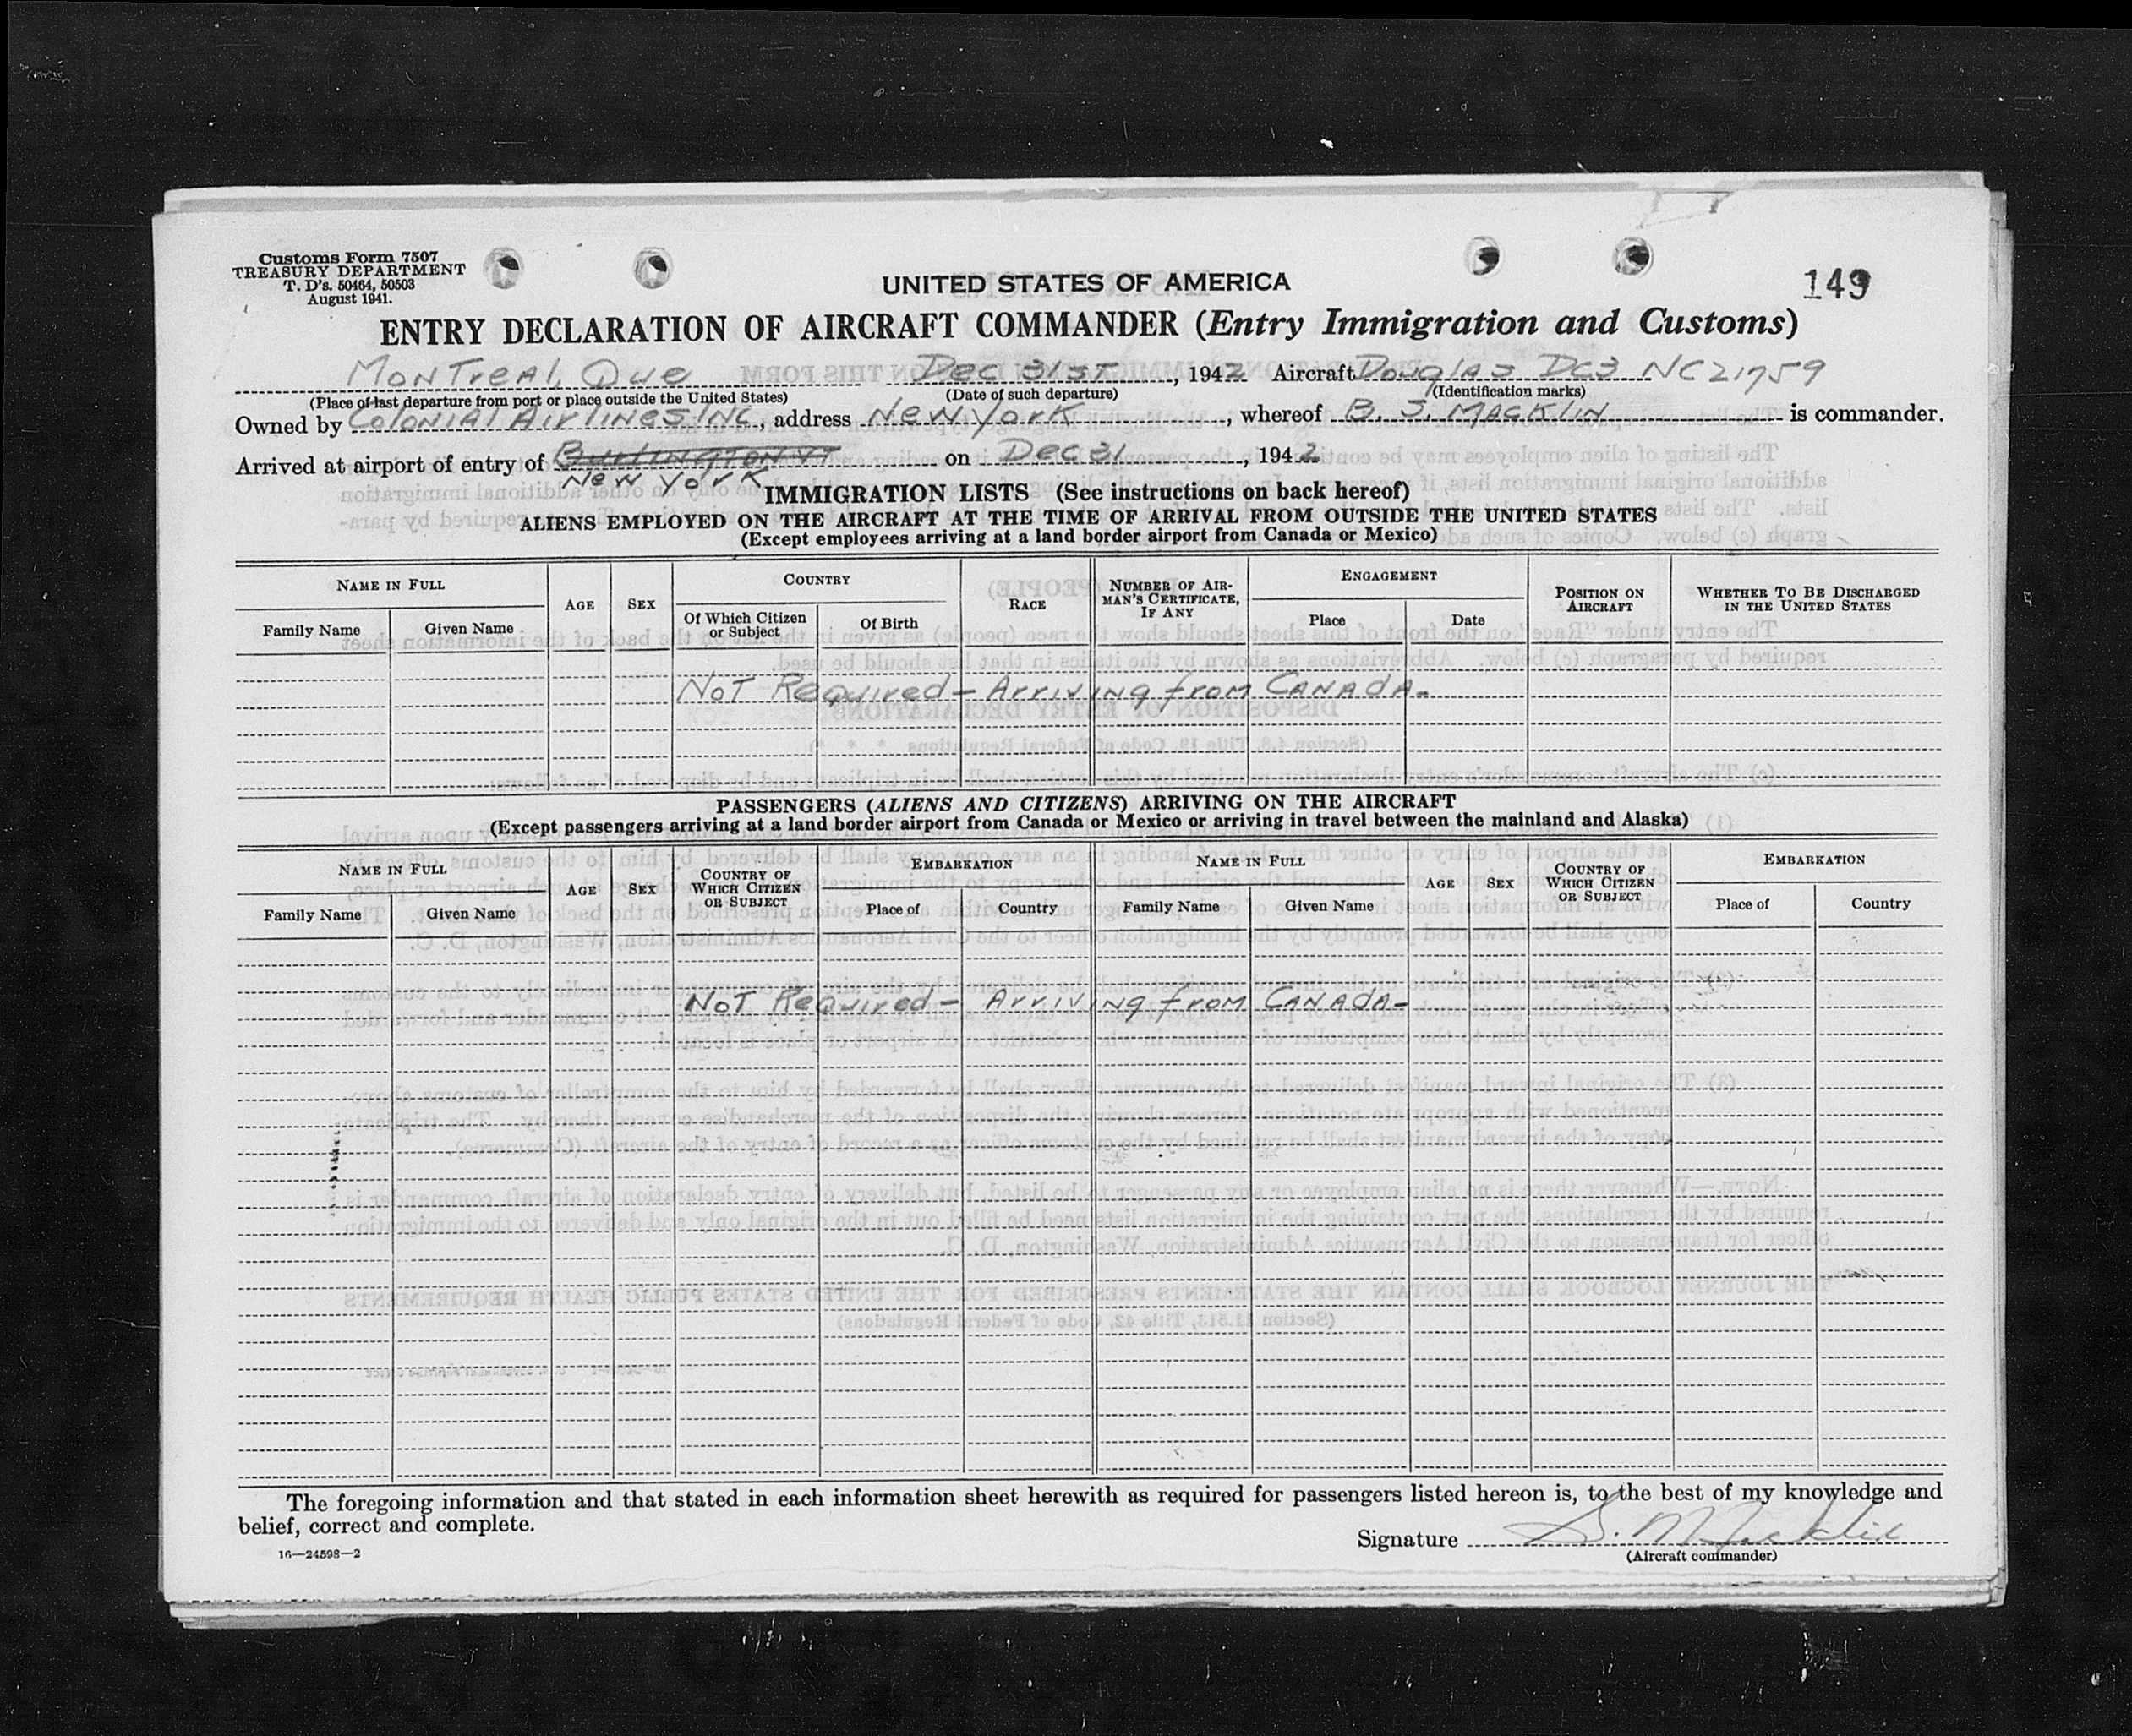 Customs Form 7507
TREASURY DEPARTMENT
T. D's. 50464, 50503
August 1941.
UNITED STATES OF AMERICA
149
ENTRY DECLARATION OF AIRCRAFT COMMANDER (Entry Immigration and Customs)
Montreal, Que Dec 31st, 1942 Aircraft Douglas DC3 NC21759
(Place of last departure from port or place outside the United States) (Date of such departure) (Identification marks)
Owned by Colonial Airlines Inc, address New York, whereof B. S. Macklin is commander.
Arrived at airport of entry of Burlington VT on Dec 31, 1942
New York
IMMIGRATION LISTS (See instructions on back hereof)
ALIENS EMPLOYED ON THE AIRCRAFT AT THE TIME OF ARRIVAL FROM OUTSIDE THE UNITED STATES
(Except employees arriving at a land border airport from Canada or Mexico)
NAME IN FULL AGE SEX COUNTRY RACE NUMBER OF AIRMAN'S CERTIFICATE, IF ANY ENGAGEMENT POSITION ON AIRCRAFT WHETHER TO BE DISCHARGED IN THE UNITED STATES
Family Name Given Name Of Which Citizen or Subject Of Birth Place Date
Not Required - Arriving from Canada -
PASSENGERS (ALIENS AND CITIZENS) ARRIVING ON THE AIRCRAFT
(Except passengers arriving at a land border airport from Canada or Mexico or arriving in travel between the mainland and Alaska)
NAME IN FULL AGE SEX COUNTRY OF WHICH CITIZEN OR SUBJECT EMBARKATION NAME IN FULL AGE SEX COUNTRY OF WHICH CITIZEN OR SUBJECT EMBARKATION
Family Name Given Name Place of Country Family Name Given Name Place of Country
Not Required - Arriving from Canada -
The foregoing information and that stated in each information sheet herewith as required for passengers listed hereon is, to the best of my knowledge and
belief, correct and complete.
Signature S. Macklin
(Aircraft commander)
16—24598—2